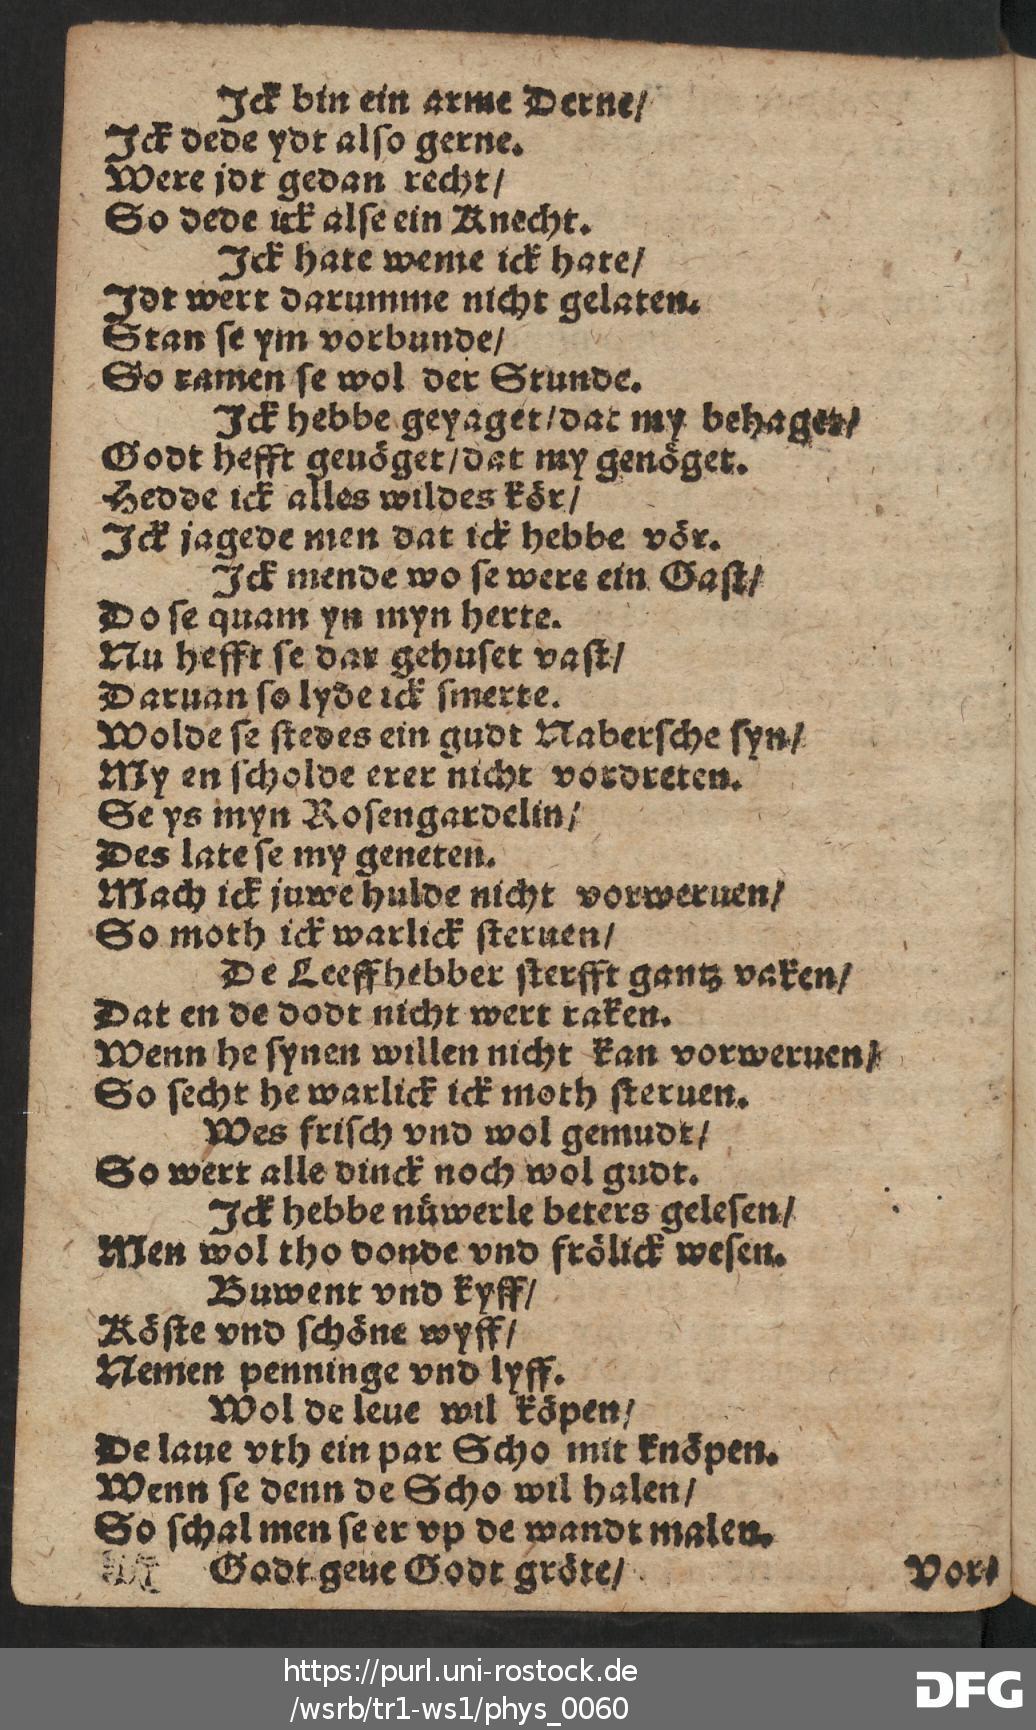 Jck bin ein arme Derne/
Jck dede ydt also gerne.
Were jdt gedan recht/
So dede ick alse ein Knecht.
Jck hate weme ick hate/
Jdt wert darumme nicht gelaten.
Stan se ym vorbunde/
So ramen se wol der Stunde.
Jck hebbe geyaget/dat my behaget/
Godt hefft geuöget/dat my genöget.
Hedde ick alles wildes kör/
Jck jagede men dat ick hebbe vör.
Jck mende wo se were ein Gast/
Do se quam yn myn herte.
Nu hefft se dar gehuset vast/
Daruan so lyde ick smerte.
Wolde se stedes ein gudt Nabersche syn/
My en scholde erer nicht vordreten.
Se ys myn Rosengardelin/
Des late se my geneten.
Mach ick juwe hulde nicht vorweruen/
So moth ick warlick steruen/
De Leeffhebber sterfft gantz vaken/
Dat en de dodt nicht wert raken.
Wenn he synen willen nicht kan vorweruen/
So secht he warlick ick moth steruen.
Wes frisch vnd wol gemudt/
So wert alle dinck noch wol gudt.
Jck hebbe nüwerle beters gelesen/
Men wol tho donde vnd frölick wesen.
Buwent vnd kyff/
Köste vnd schöne wyff/
Nemen penninge vnd lyff.
Wol de leue wil köpen/
De laue vth ein par Scho mit knöpen.
Wenn se denn de Scho wil halen/
So schal men se er vp de wandt malen.
Godt geue Godt gröte/
Vor/
https://purl.uni-rostock.de
/wsrb/tr1-ws1/phys_0060
DFG